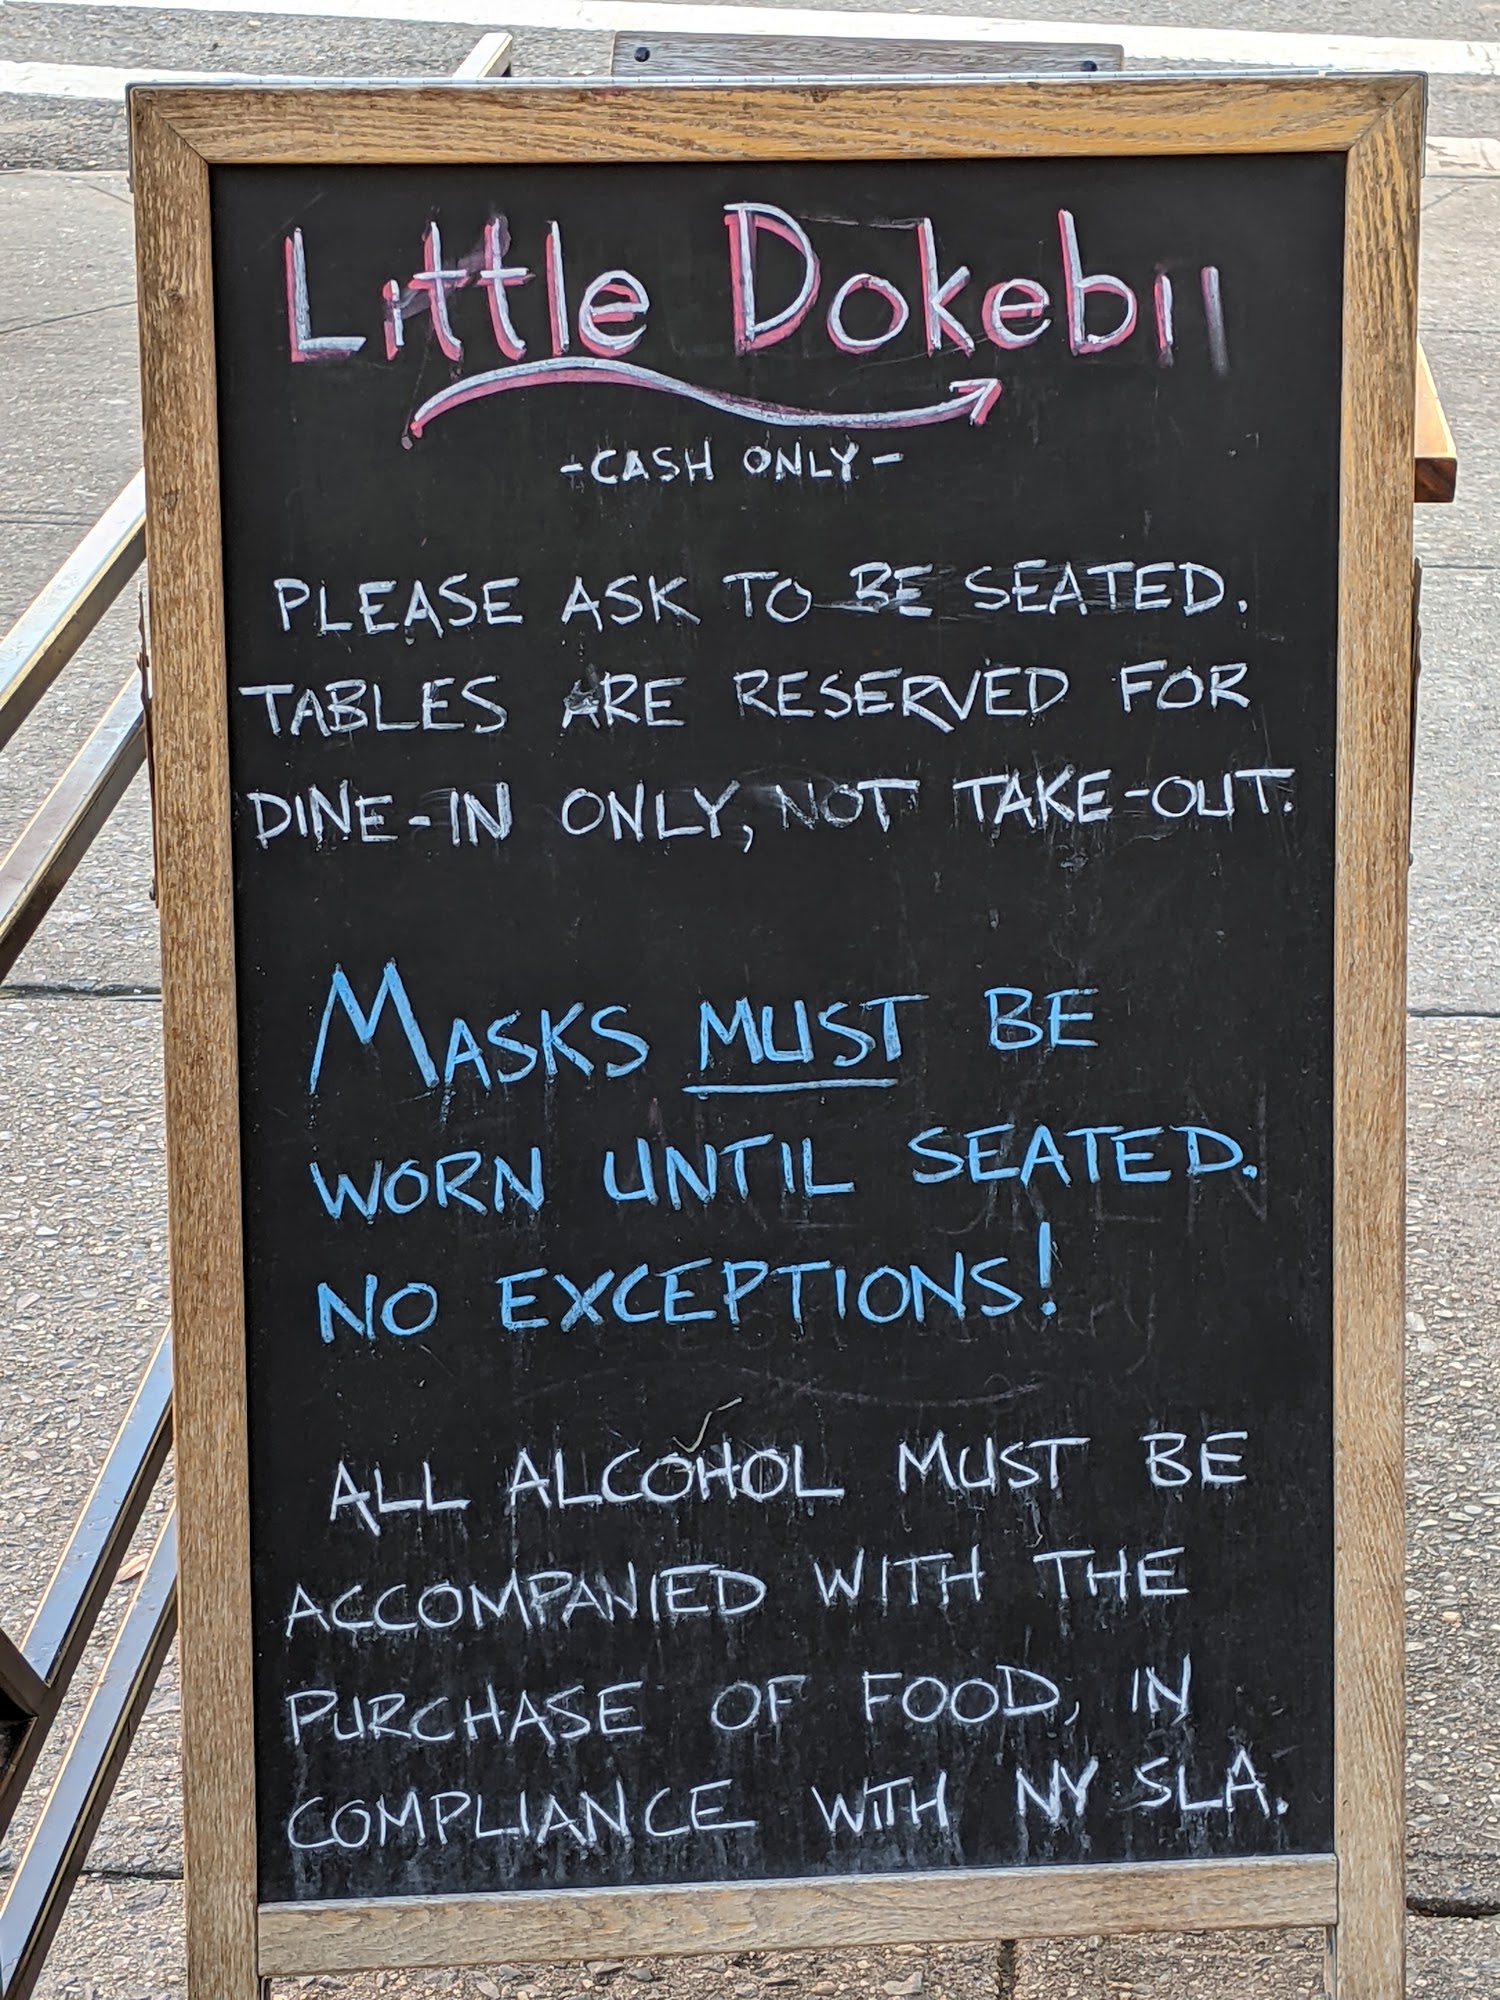 Little Dokebi
-CASH ONLY-
PLEASE ASK TO BE SEATED.
TABLES ARE RESERVED FOR
DINE-IN ONLY, NOT TAKE-OUT.
MASKS MUST BE
WORN UNTIL SEATED.
NO EXCEPTIONS!
ALL ALCOHOL MUST BE
ACCOMPANIED WITH THE
PURCHASE OF FOOD, IN
COMPLIANCE WITH NY SLA.